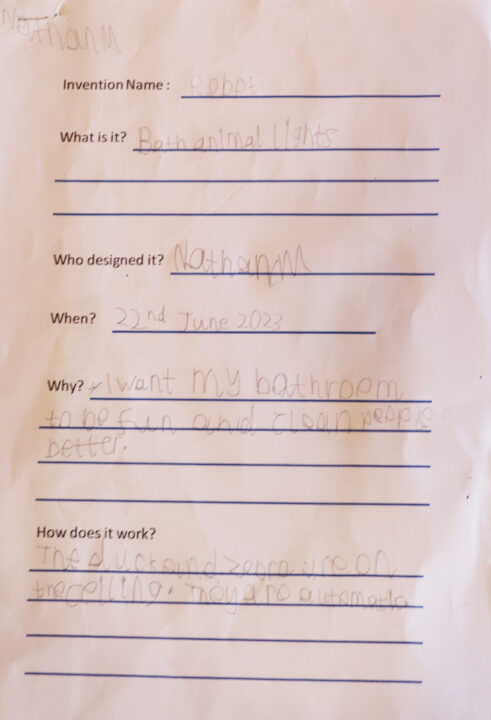 NathanM
Invention Name : Robot
What is it? Bath animal Lights
Who designed it? NathanM
When? 22nd June 2023
Why? I want my bathroom
to be fun and clean people
better.
How does it work?
The duck and zebra are on
the celling. They are automatic